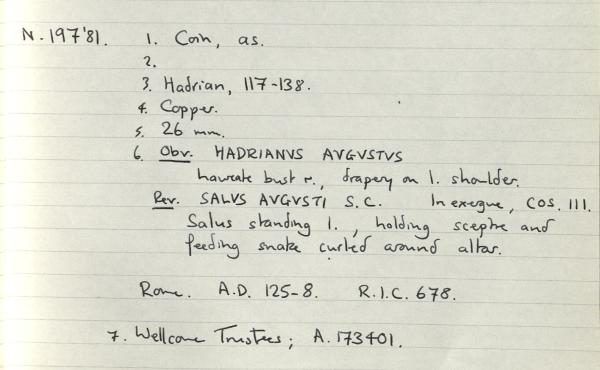 N. 197'81. 1. Coin, as.
2.
3. Hadrian, 117-138.
4. Copper.
5. 26 mm.
6. Obv. HADRIANVS AVGVSTVS
laureate bust r., drapery on l. shoulder.
Rev. SALVS AVGVSTI S.C. In exergue, COS. III.
Salus standing l., holding sceptre and
feeding snake curled around altar.
Rome. A.D. 125-8. R.I.C. 678.
7. Wellcome Trustees; A. 173401.